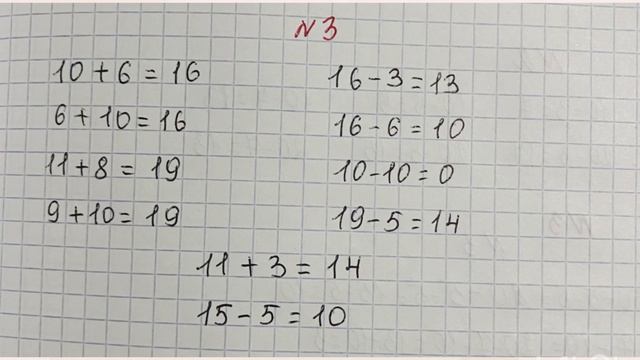 N3
10 + 6 = 16
6 + 10 = 16
11 + 8 = 19
9 + 10 = 19
16 - 3 = 13
16 - 6 = 10
10 - 10 = 0
19 - 5 = 14
11 + 3 = 14
15 - 5 = 10